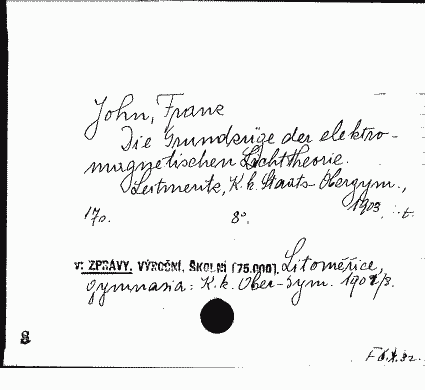 John, Franz
Die Grundzüge der elektro-
magnetischen Lichttheorie.
Leitmeritz, K.k. Staats-Obergym.,
1903.
17p. 8°.
v: ZPRÁVY, VÝROČNÍ, ŠKOLNÍ [75.000]. Litoměřice,
gymnasia: K.k. Ober-Gym. 1902/3.
8